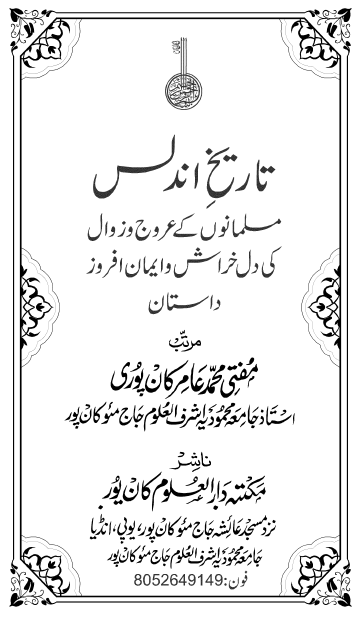 تاریخِ اندلس
مسلمانوں کے عروج و زوال
کی دل خراش و ایمان افروز
داستان
مرتب
مفتی محمد عامر کان پوری
استاذ جامعہ محمودیہ اشرف العلوم جاج مئو کان پور
ناشر
مکتبہ دارالعلوم کان پور
نزد مسجد عائشہ جاج مئو کان پور، یوپی، انڈیا
جامعہ محمودیہ اشرف العلوم جاج مئو کان پور
فون: 8052649149